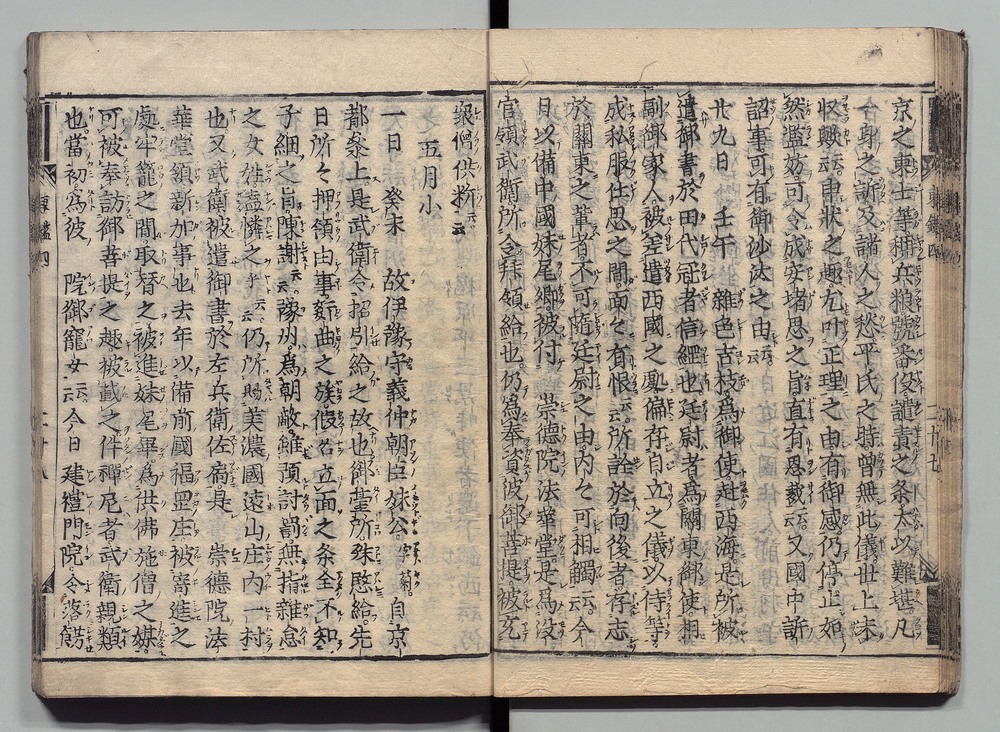 京之東士等稱兵粮號番俊譴責之条太以難堪凡
今身之訴及諸人之愁平氏之時曾無此儀世上未
収歟云云申状之趣尤叶正理之由有御感仍停止如
然濫妨可令成安堵思之旨直有恩裁云云又國中訴
詔事可有御沙汰之由云云
廿九日 壬午 雜色吉枝為御使赴西海是所被
遣御書於田代冠者信綱也廷尉者為關東御使相
副御家人被差遣西國之處偏存自立之儀以侍等
成私服仕思之間面々有恨云云所詮於向後者存志
於關東之輩者不可隨廷尉之由内々可相觸云云今
日以備中國妹尾郷被付 崇德院法華堂是為没
官領武衛所令拜領給也仍為奉資彼御菩提被宛
衆僧供粆云云
五月小
一日 癸未 故伊豫守義仲朝臣妹公字菊自京
都參上是武衛令招引給之故也御臺所殊愍給先
日所々押領由事奸曲之族假名立面之条全不知
子細之旨陳謝云云豫州為朝敵雖預討罰無指雜怠
之女姓盍憐之乎云云仍所賜美濃國遠山庄内一村
也又武衛被遣御書於左兵衛佐局是 崇德院法
華堂領新加事也去年以備前國福罡庄被寄進之
處牢籠之間取替之被進妹尾畢為洪佛施僧之媒
可被奉訪御菩提之趣被載之件禪尼者武衛親類
也當初為彼 院御寵女云云今日 建禮門院令落餝
東鑑四
二十八
二十七